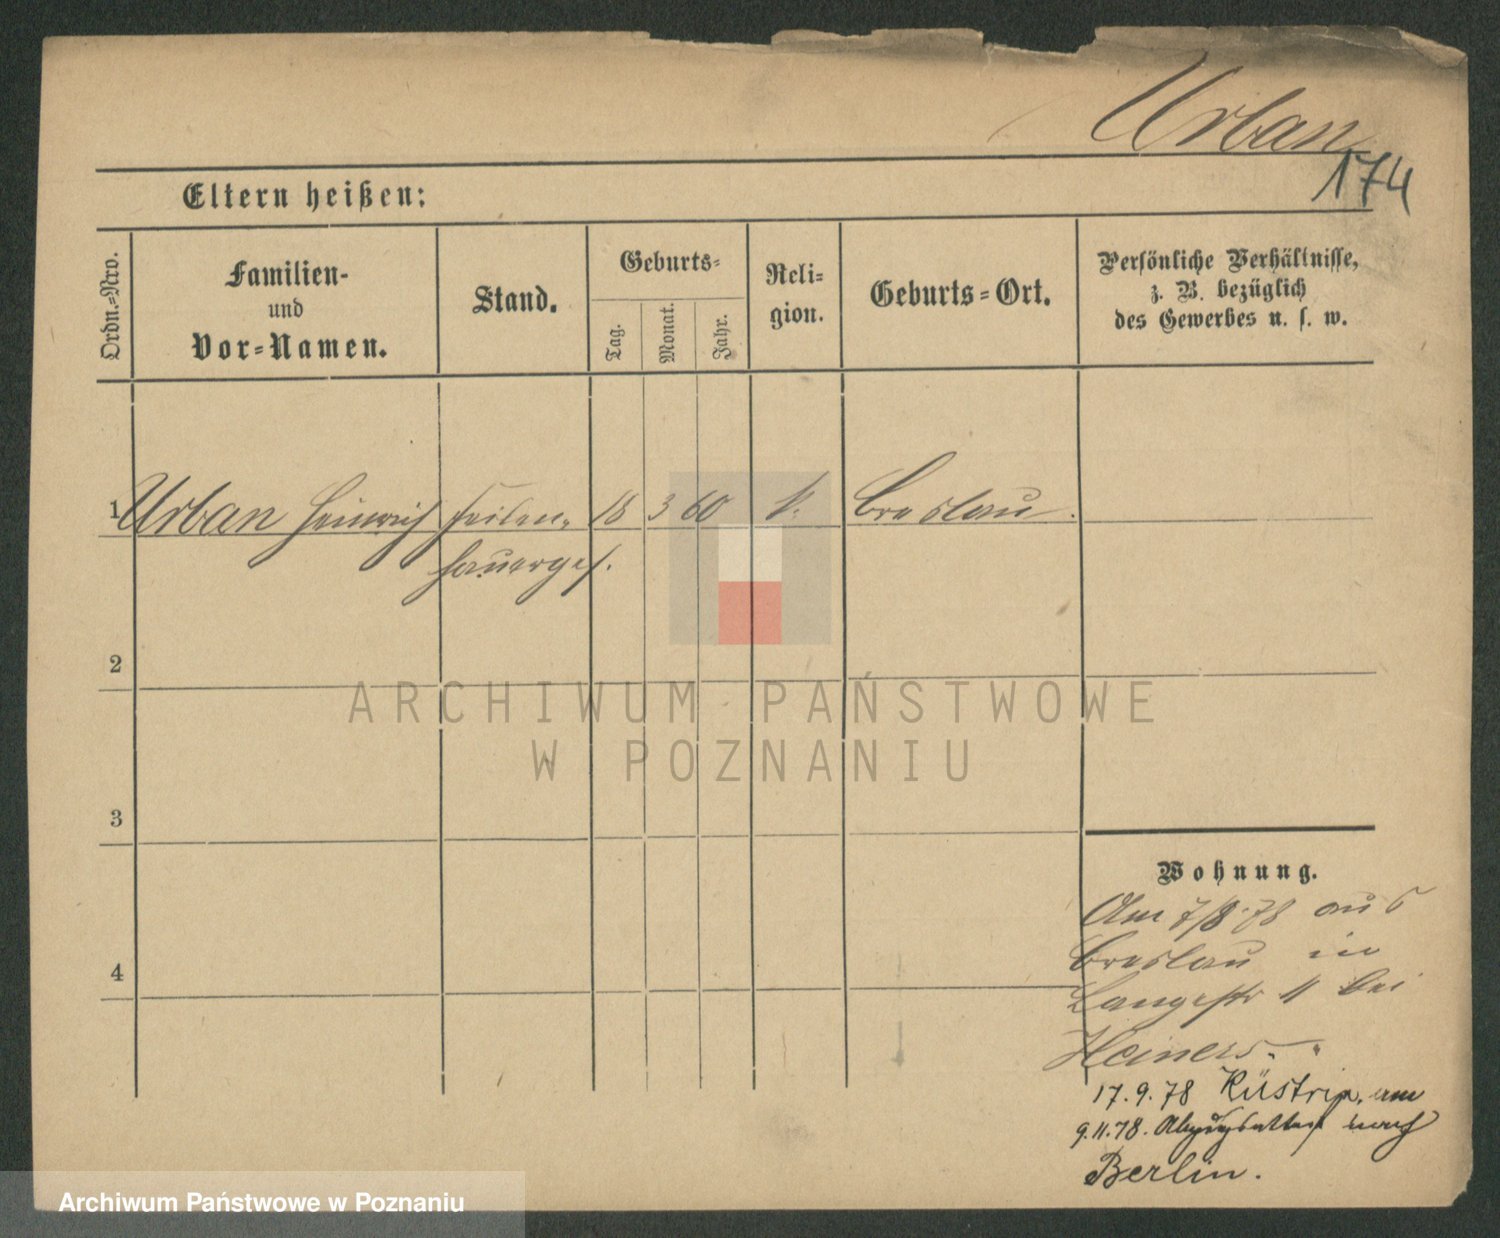 Urban
174
Eltern heißen:
Ordn.=Nro.
Familien-
und
Vor=Namen.
Stand.
Geburts=
Tag.
Monat.
Jahr.
Reli=
gion.
Geburts=Ort.
Persönliche Verhältnisse,
z. B. bezüglich
des Gewerbes u. s. w.
1 Urban Heinrich Feilen= 18 3 60 k. Breslau.
hauerges.
2
ARCHIWUM PAŃSTWOWE
W POZNANIU
3
Wohnung.
Am 7/8.78 aus
Breslau in
Langestr 11 bei
Heiners.
4
17.9.78 Küstrin, am
9.11.78. Abzugsattest nach
Berlin.
Archiwum Państwowe w Poznaniu